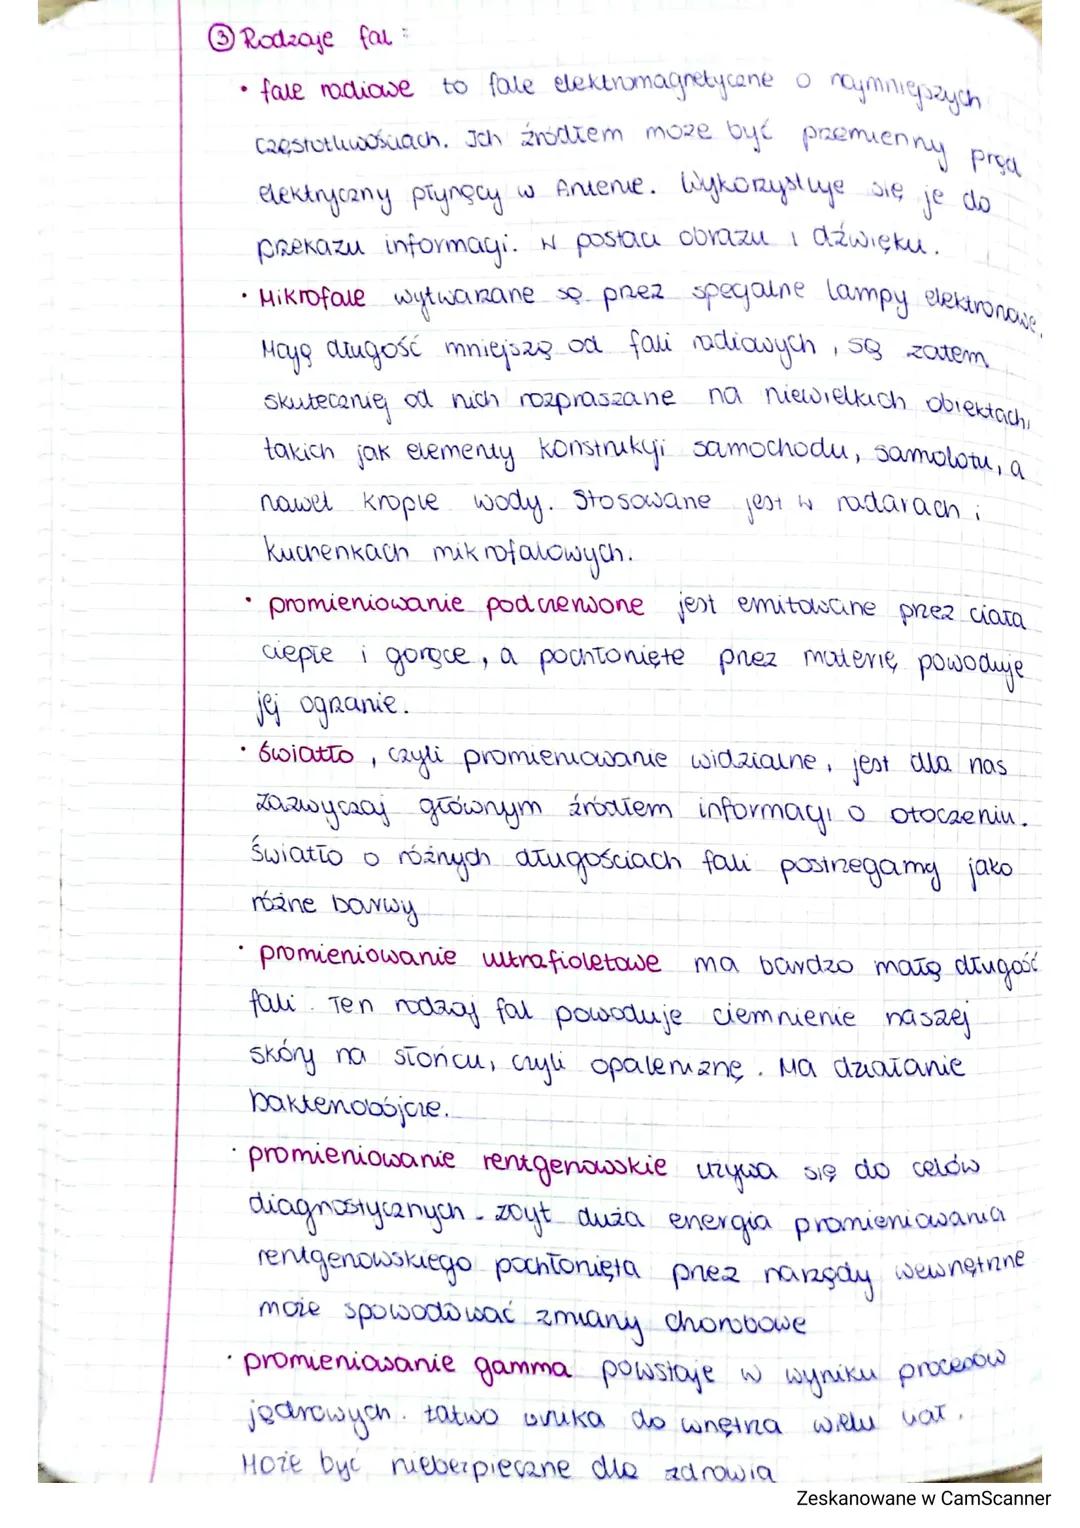 ③ Rodzaje fal:
• fale radiowe to fale elektromagnetyczne o najmniejszych
częstotliwościach. Ich źródłem może być przemienny prąd
elektryczny płynący w Antenie. Wykorzystuje się je do
przekazu informacji. W postaci obrazu i dźwięku.
• Mikrofale wytwarzane są przez specjalne lampy elektronowe.
Mają długość mniejszą od fali radiowych, są zatem
skuteczniej od nich rozpraszane na niewielkich obiektach,
takich jak elementy konstrukcji samochodu, samolotu, a
nawet krople wody. Stosowane jest w radarach i
kuchenkach mikrofalowych.
• promieniowanie podczerwone jest emitowane przez ciała
ciepłe i gorące, a pochłonięte przez materię powoduje
jej ogrzanie.
• światło, czyli promieniowanie widzialne, jest dla nas
zazwyczaj głównym źródłem informacji o otoczeniu.
Światło o różnych długościach fali postrzegamy jako
różne barwy
• promieniowanie ultrafioletowe ma bardzo małą długość
fali. Ten rodzaj fal powoduje ciemnienie naszej
skóry na słońcu, czyli opaleniznę. Ma działanie
bakteriobójcze.
• promieniowanie rentgenowskie używa się do celów
diagnostycznych. zbyt duża energia promieniowania
rentgenowskiego pochłonięta przez narządy wewnętrzne
może spowodować zmiany chorobowe
• promieniowanie gamma powstaje w wyniku procesów
jądrowych. łatwo wnika do wnętrza wielu ciał.
Może być niebezpieczne dla zdrowia
Zeskanowane w CamScanner